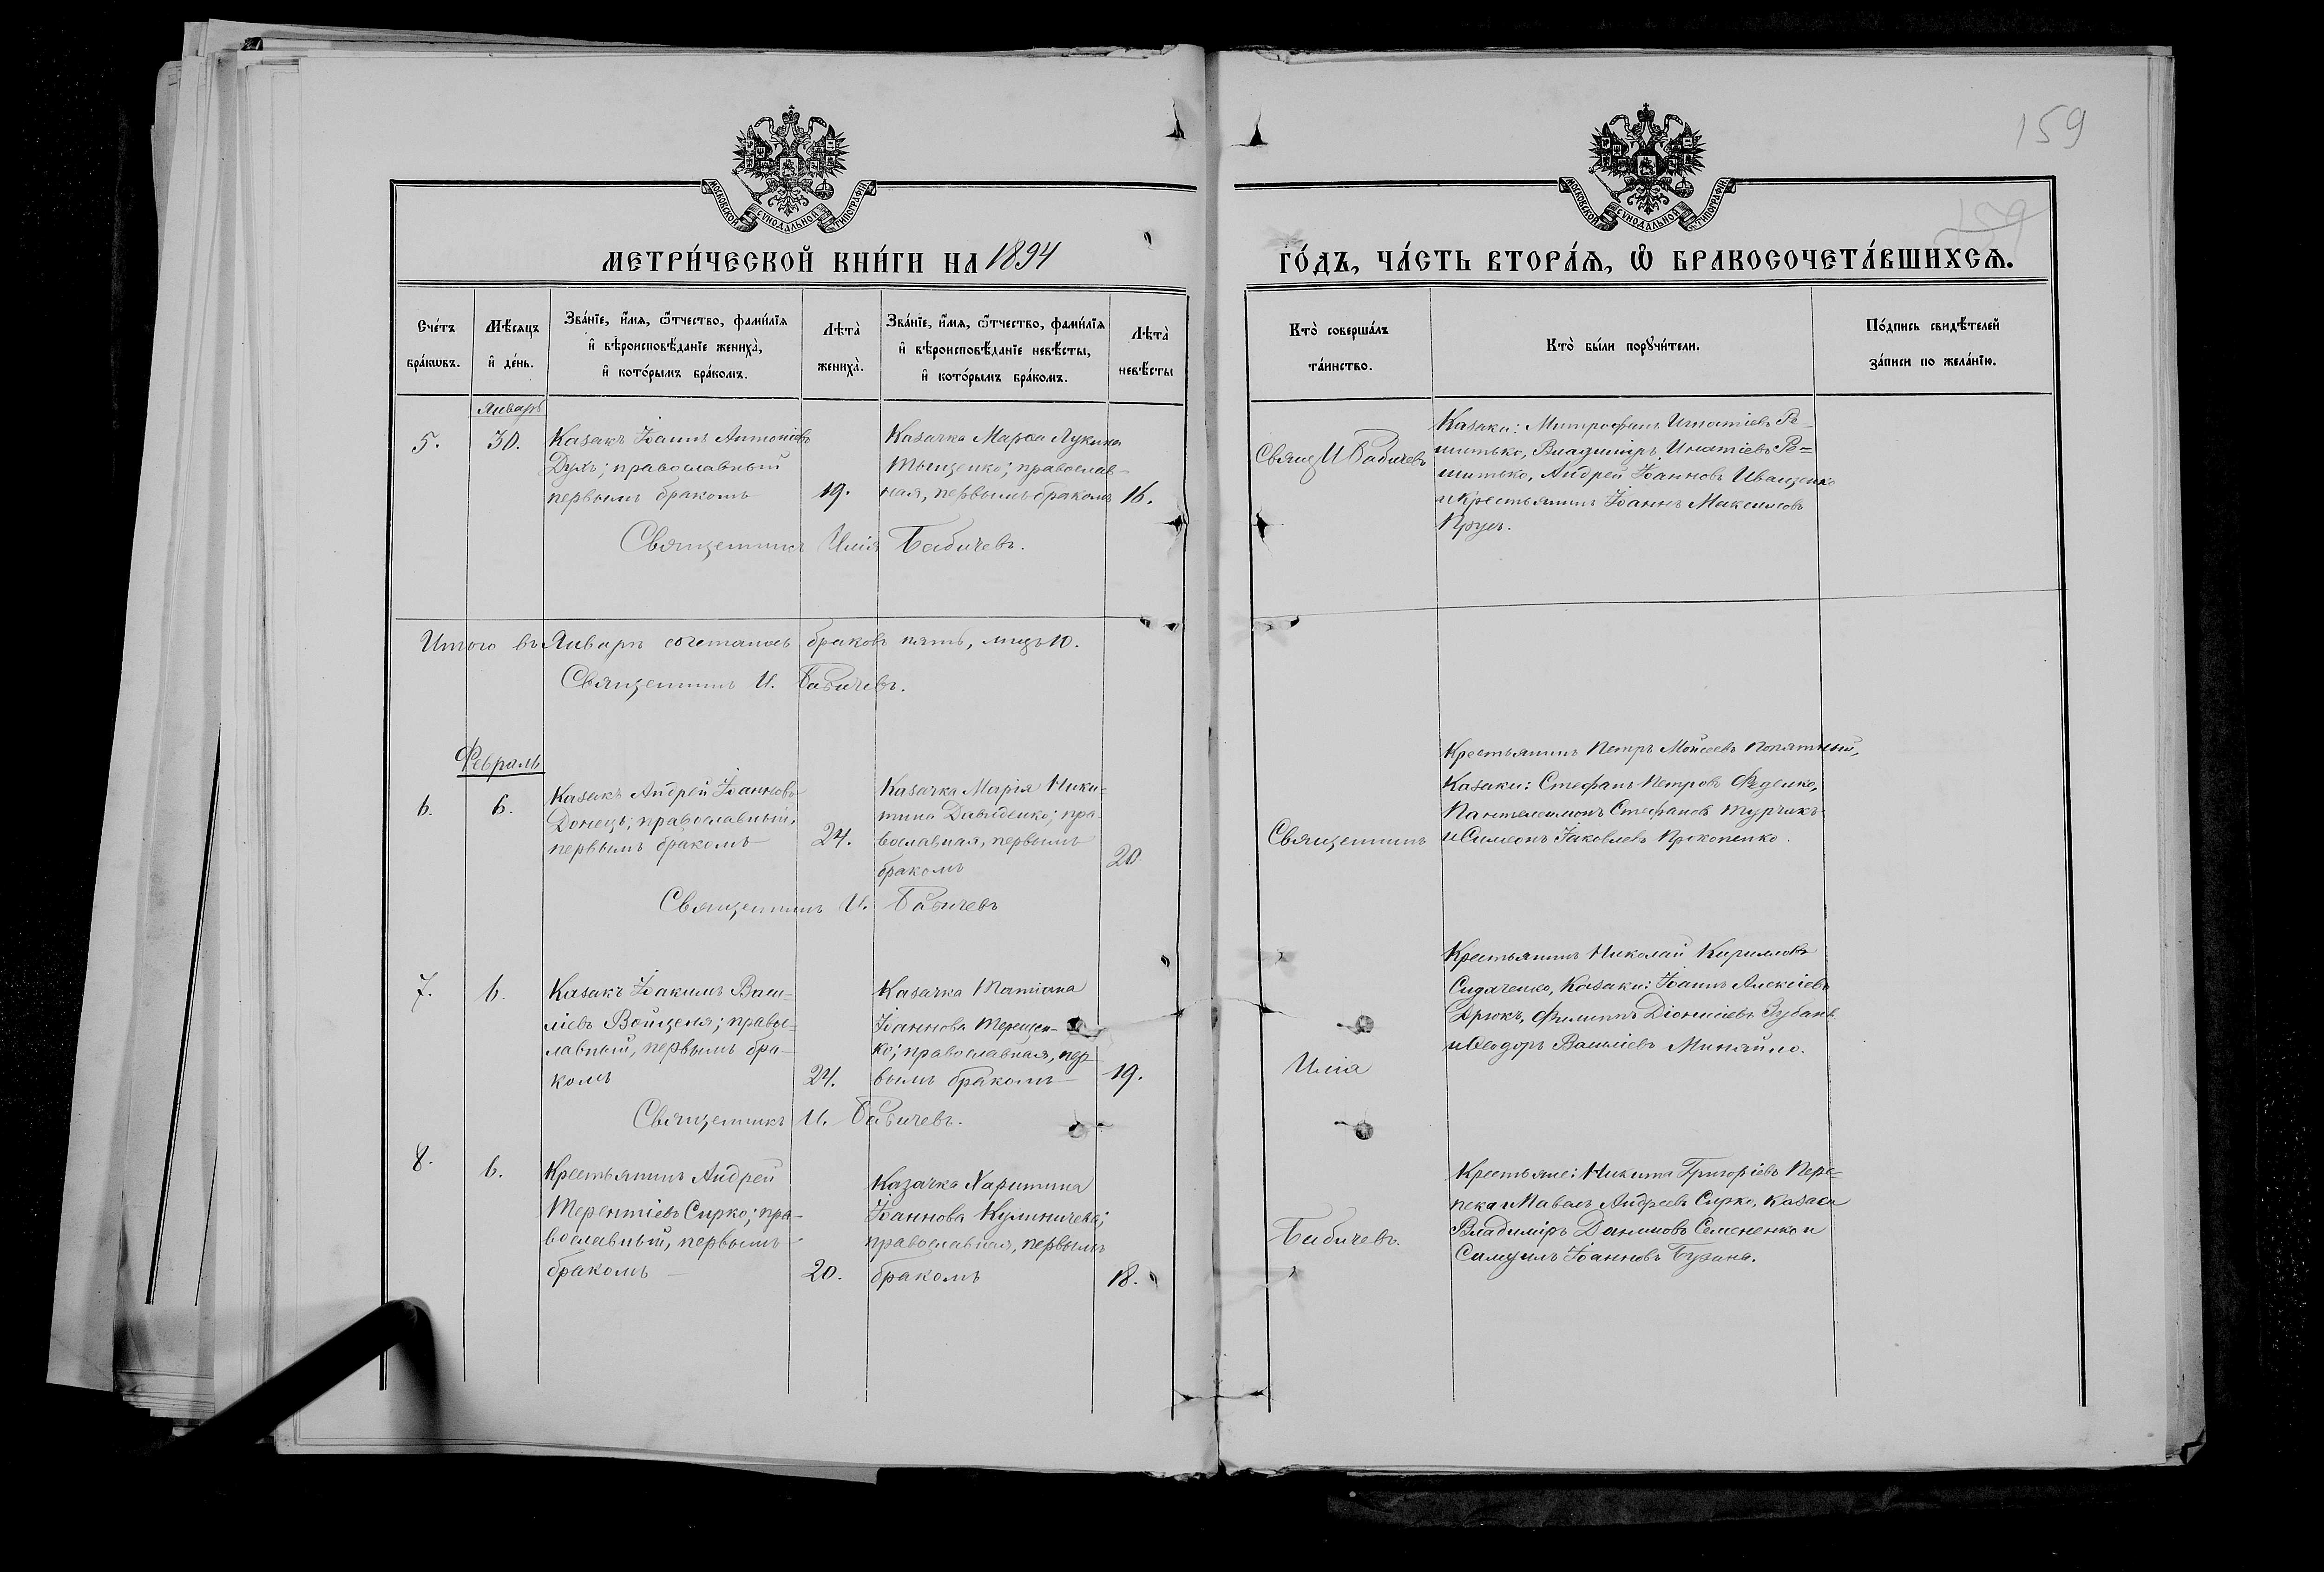 159
159
МОСКОВСКОЙ СѴНОДАЛЬНОЙ ТИПОГРАФІИ
МОСКОВСКОЙ СѴНОДАЛЬНОЙ ТИПОГРАФІИ
МЕТРИ́ЧЕСКОЙ КНИ́ГИ НА 1894
ГО́ДЪ, ЧА́СТЬ ВТОРА́Я, Ѡ БРАКОСОЧЕТА́ВШИХСЯ.
Сче́тъ
бра́кѡвъ.
Мѣ́сяцъ
и҆ де́нь.
Зва́нїе, и҆́мя, ѻ҆́тчество, фами́лїя
и҆ вѣроисповѣ́данїе жениха̀,
и҆ кото́рымъ бра́комъ.
Лѣта̀
жениха̀.
Зва́нїе, и҆́мя, ѻ҆́тчество, фами́лїя
и҆ вѣроисповѣ́данїе невѣ́сты,
и҆ кото́рымъ бра́комъ.
Лѣта̀
невѣ́сты
Кто̀ соверша́лъ
та́инство.
Кто̀ бы́ли порꙋчи́тели.
По́дпись свидѣ́телей
за́писи по жела́нїю.
Январь
5.
30.
Казакъ Іоаннъ Антоніевъ
Духъ; православный
первымъ бракомъ
19.
Казачка Марѳа Лукина
Тыщенко; православ-
ная, первымъ бракомъ
16.
Священникъ Илія Бабичевъ.
Свящ И Бабичевъ
Казаки: Митрофанъ Игнатіевъ Ре-
шитько, Владиміръ Игнатіевъ Ре=
шитько, Андрей Іоанновъ Иващенко
и Крестьянинъ Іоаннъ Максимовъ
Итого въ Январѣ сочеталось браковъ пять, лицъ 10.
Священникъ И. Бабичевъ.
Февраль
6.
6.
Казакъ Андрей Іоанновъ
Донецъ; православный,
первымъ бракомъ
24.
Казачка Марія Ники-
тина Давиденко; пра-
вославная, первымъ
бракомъ
20
Священникъ И. Бабичевъ
Священникъ
Крестьянинъ Петръ Мойсеевъ
Казаки: Стефанъ Петровъ Феденко,
Пантелеимонъ Стефановъ Турчикъ
и Симеонъ Іаковлевъ Прокопенко.
7.
6.
Казакъ Іоакимъ Васи-
ліевъ Войцеля; право-
лавный, первымъ бра-
комъ
24.
Казачка Татіана
Іоаннова Терещен-
ко; православная, пер
вымъ бракомъ
19.
Священникъ И. Бабичевъ.
Илія
Крестьянинъ Николай Кириловъ
Сидаченко, Казаки: Іоаннъ Алексіевъ
Крюкъ, Филиппъ Діонисіевъ Зубань
и Ѳеодоръ Василіевъ Миняйло.
8.
6.
Крестьянинъ Андрей
Терентіевъ Сирко; пра-
вославный, первымъ
бракомъ
20.
Казачка Харитина
Іоаннова Кулиничева;
православная, первымъ
бракомъ
18.
Бабичевъ.
Крестьяне: Никита Григоріевъ Пере-
пека и Павелъ Андреевъ Сирко, казаки
Владиміръ Даниловъ Семененко и
Самуилъ Іоанновъ Бузина.